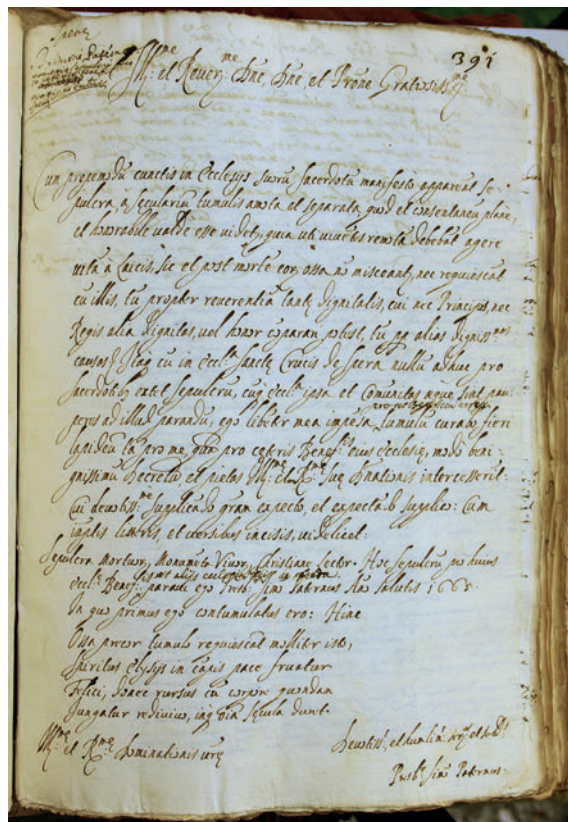 391
Ill:me et Rever:me Dñe, Dñe, et Prõne Gratiosiss:me
Cum propemodũ cunctis in Ecclesijs suorũ sacerdotũ manifestò appareat se-
pulcra à secularium tumulis amota et separata, quod et consentaneũ planè,
et honorabile valdè esse videt, quia uti viventes remotã debebãt agere
vitã à laicis, sic et post mortẽ eor, ossa nõ misceant, nec requiescãt
cũ illis, tũ propter reverentiã tantę dignitatis, cui nec Principis, nec
Regis alia dignitas, vel honor cõparari potest, tũ ꝓp alias digniss:mas
causas. Itaq cũ in Eccl:a Sanctę Crucis de nullũ adhuc pro
sacerdotibꝫ extet sepulcrũ, cuq eccl:a ipsa et Comunitas neque sint pau-
peres ad illud parandũ, ego libẽter mea impẽsa tumulũ curabo fieri
lapideũ tã pro me, quã pro cęteris Benef:tis eius ecclesię, modò beni-
gnissimũ Decretũ et pietas Ill:mę et R:mę Suę Dñationis intercesserit.
Cui devotiss:me supplicando gram expecto, et expectãdo supplico: Cum
infrascriptis litteris, et versibus incisis, videlicet:
Sepulcra Mortuor, Monumẽta Vivor, Christiane Lector. Hoc sepulcrũ pro huius
Eccl:ę Benef: paravi ego Presb: Sim: Paternus Año Salutis 1665.
In quo primus ego contumulatus ero: Hinc
Ossa precor tumulo requiescãt molliter isto,
Spiritus Elysijs in cãpis pace fruatur
Felici, donec rursus cũ corpore quondam
Jungatur redivivo, inq oĩa sęcula durẽt.
Ill:mę et R:mę Dominationis vrę
Devotiss: et humilis:
Presb: Sim: Paternus.